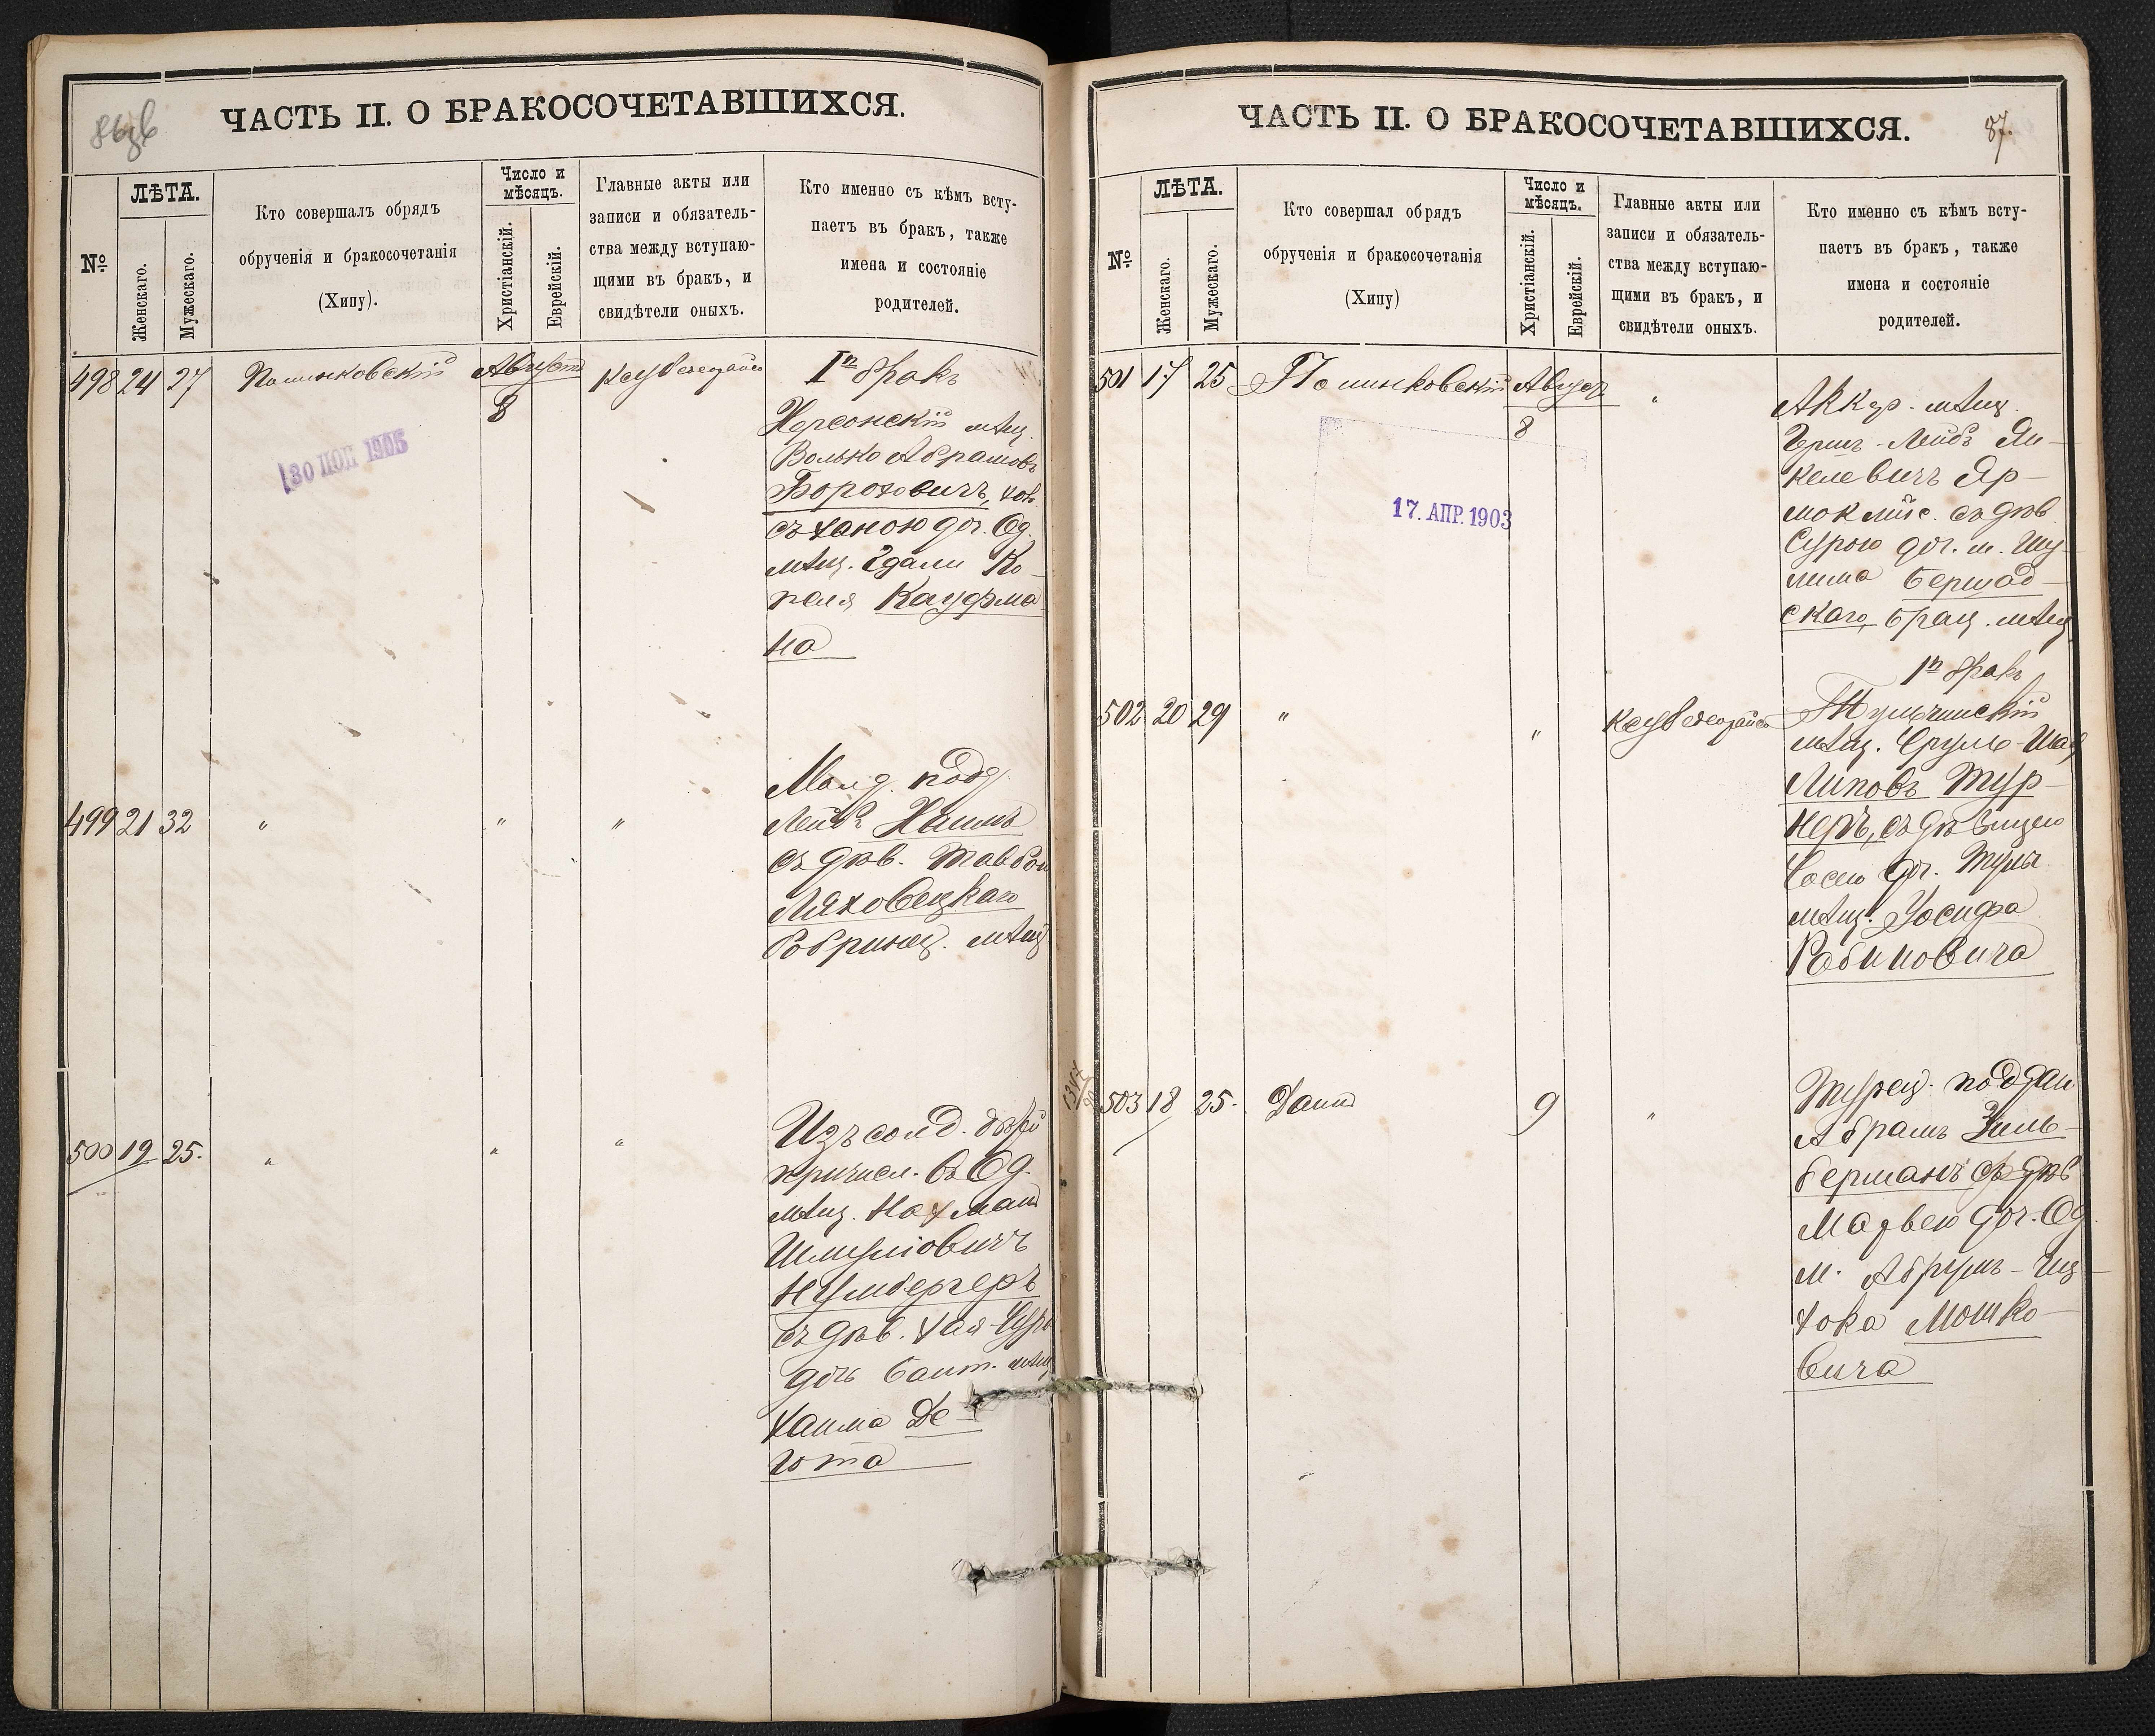 86об
ЧАСТЬ II. О БРАКОСОЧЕТАВШИХСЯ.
№
ЛѢТА.
Женскаго.
Мужескаго.
Кто совершалъ обрядъ
обрученія и бракосочетанія
(Хипу).
Число и
мѣсяцъ.
Христіанскій.
Еврейскій.
Главные акты или
записи и обязатель-
ства между вступаю-
щими въ бракъ, и
свидѣтели оныхъ.
Кто именно съ кѣмъ всту-
паетъ въ бракъ, также
имена и состояніе
родителей.
498 24 27 Полинковскій Августъ
8
30 1905
Iй бракъ
Херсонскій мѣщ.
Волько Абрамовъ
Бороховичъ, хол.
съ Ханою доч. Од.
мѣщ. Эдали Ко-
пеля Кауфма-
на
499 21 32 " " "
Молд. подд.
Лейбъ
съ дѣв. Тавбою
Ляховецкаго
бобринец. мѣщ.
500 19 25. " " "
Изъ солд. дѣтей
причисл. въ Од.
мѣщ. Нахманъ
Шмуліовичъ
Нумбергеръ
съ дѣв. Хая-Сура
дочь Балт. мѣщ.
Хаима Де-
гота
87.
ЧАСТЬ II. О БРАКОСОЧЕТАВШИХСЯ.
№
ЛѢТА.
Женскаго.
Мужескаго.
Кто совершал обрядъ
обрученія и бракосочетанія
(Хипу)
Число и
мѣсяцъ.
Христіанскій.
Еврейскій.
Главные акты или
записи и обязатель-
ства между вступаю-
щими въ бракъ, и
свидѣтели оныхъ.
Кто именно съ кѣмъ всту-
паетъ въ бракъ, также
имена и состояніе
родителей.
501 17 25 Полинковскій Август
8
"
17. АПР. 1903
Аккер. мѣщ.
Герш-Лейбъ Ян-
келевичъ Яр-
съ дѣв.
Сурою доч. м. Шу-
лима Бершад-
скаго, брац. мѣщ.
1й бракъ
502 20 29 " "
Тульчинскій
мѣщ. Сруль-
Липовъ Тур-
неръ, съ дѣвицею
Сосею доч. Тульч.
мѣщ. Іосифа
Рабиновича
503 18 25. 9 "
Турец. поддан.
Абрамъ Зиль-
берманъ съ дѣв.
доч. Од.
м. Абрумъ-Иц-
хока Мошко-
вича